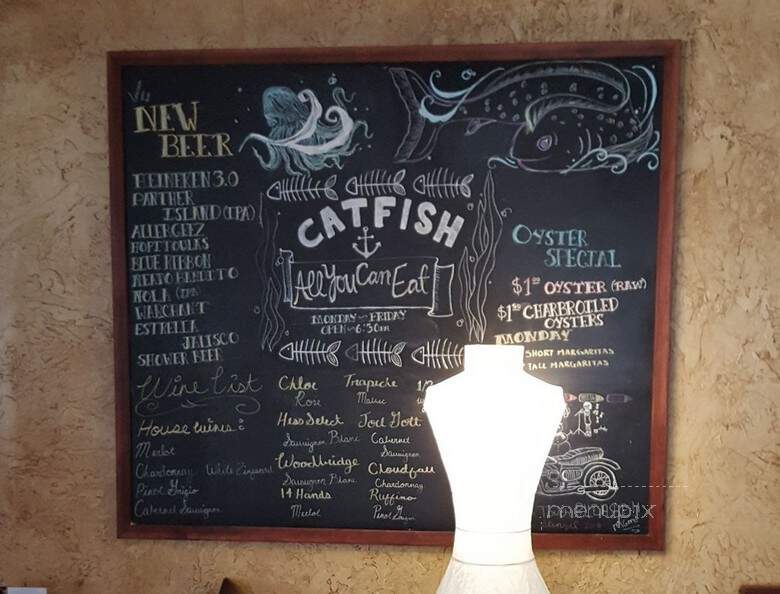 NEW
BEER
HEINEKEN 3.0
PANTHER
ISLAND (IPA)
ALLERGEEZ
HOPFTOULKS
BLUE RIBBON
NOLA (IPA)
WARCHANT
ESTRELLA
JALISCO
SHOWER BEER
CATFISH
All You Can Eat
MONDAY - FRIDAY
OPEN - 6:30
OYSTER
SPECIAL
$1 OYSTER (RAW)
$1 CHARBROILED
OYSTERS
MONDAY
SHORT MARGARITAS
TALL MARGARITAS
Wine List
House wines:
Merlot
Chardonnay White Zinfandel
Pinot Grigio
Cabernet Sauvignon
Chloe
Rose
Hess Select
Sauvignon Blanc
Woodbridge
Sauvignon Blanc
14 Hands
Merlot
Trapiche
Malbec
Joel Gott
Cabernet
Sauvignon
Cloudfall
Chardonnay
Ruffino
Pinot Grigio
menupix